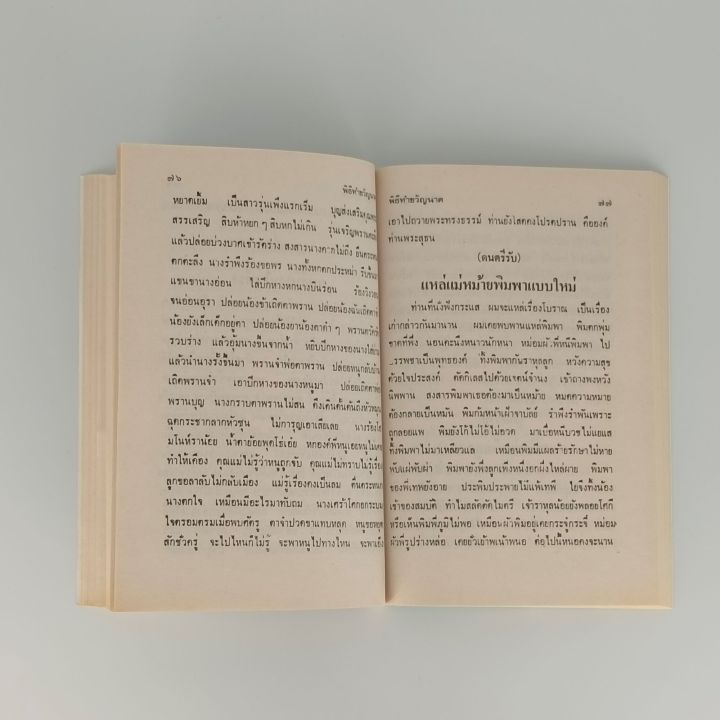 ๗๖
พิธีทำขวัญนาค
หยาดเยิ้ม เป็นสาวรุ่นเพิ่งแรกเริ่ม บุญส่งเสริมคุณ
สรรเสริญ สิบห้าหยก ๆ สิบหกไม่เกิน รุ่นเจริญพราน
แล้วปล่อยบ่วงบาศเข้ารัดร่าง สงสารนางคาดไม่ถึง ยืนตระหนก
ตกตะลึง นางรำพึงร้องขอพร นางทั้งหกตกประหม่า รีบขึ้น
แขนขานางอ่อน ใส่ปีกหางหกนางบินร่อน ร้องวิงวอน
จนอ่อนอุรา ปล่อยน้องข้าเถิดตาพราน ปล่อยน้องฉันเถิดตา
น้องยังเล็กเด็กอยู่ตา ปล่อยน้องยาน้องตาดำ ๆ พราน
รวบร่าง แล้วอุ้มนางขึ้นจากน้ำ หยิบปีกหางของนางใส่
แล้วนำนางรั้งขึ้นมา พรานจ๋าพ่อตาพราน ปล่อยหนูกลับบ้าน
เถิดพรานจ๋า เอาปีกหางของนางหนูมา ปล่อยเถิดตา
พรานบุญ นางกราบตาพรานไม่สน ดึงเดินดั้นด้นถึงหัว
ฉุดกระชากลากหัวซุน ไม่การุญเอาเสียเลย นางร้อง
มโนห์ราน้อย น้ำตาย้อยพูดโธ่เอ๋ย หกองค์พี่หนูเอยหนูไม่เคย
ทำให้เคือง คุณแม่ไม่รู้ว่าหนูถูกจับ คุณแม่ไม่ทราบไม่รู้เรื่อง
ลูกขอลาลับไม่กลับเมือง แม่รู้เรื่องคงเป็นลม ตื่นตระหนก
นางตกใจ เหมือนมีอะไรมาทับถม นางเศร้าโศกยอกระบม
ใจตรอมตรมเมื่อพบศัตรู ตาจ๋าปวดขาแทบหลุด หนูขอหยุด
สักชั่วครู่ จะไปไหนก็ไม่รู้ จะพาหนูไปทางไหน จะพาเย้ง
พิธีทำขวัญนาค
๗๗
เอาไปถวายพระทรงธรรม์ ท่านยังโสดคงโปรดปราน คือองค์
ท่านพระสุธน
(ดนตรีรับ)
แหล่แม่หม้ายพิมพาแบบใหม่
ท่านที่นั่งฟังกระแส ผมจะแหล่เรื่องโบราณ เป็นเรื่อง
เก่ากล่าวกันมานาน ผมเคยพบพานแหล่พิมพา พิมตกพุ่ม
ขาดที่พึ่ง นอนคะนึงหนาวนักหนา หม่อมผัวพี่ทนพิมพา ไป
บรรพชาเป็นพุทธองค์ ทิ้งพิมพากับราหุลลูก หวังความสุข
ด้วยใจประสงค์ ตัดกิเลสไปด้วยเจตน์จำนง เข้าถางพงหวัง
นิพพาน สงสารพิมพาเธอต้องมาเป็นหม้าย หมดความหมาย
ต้องกลายเป็นหมัน พิมก้มหน้าเฝ้าจาบัลย์ รำพึงรำพันเพราะ
ถูกลอยแพ พิมยังโก้ไม่โอ้ไม่อวด มาเบื่อหนีบวชไม่แยแส
ทิ้งพิมพาไม่มาเหลียวแล เหมือนพิมมีแผลร้ายรักษาไม่หาย
พับแผ่พับผ้า พิมพายังพึ่งลูกเพิ่งหนึ่งอกผึ่งไหล่ผาย พิมพา
ของพี่เทพยังอาย ประพิมประพายไม่แพ้เทพี ไยจึงทิ้งน้อง
เจ้าของสมบัติ ทำไมสลัดตัดไมตรี เจ้าราหุลน้อยยังพลอยโศกี
หรือเห็นพิมพี่ภูมิไม่พอ เหมือนผัวพิมอยู่เคยกระจู๋กระจี๋ หม่อม
ผัวพี่รูปร่างหล่อ เคยยั่วเย้าพะเน้าพนอ ต่อไปนี้หนอคงจะนาน